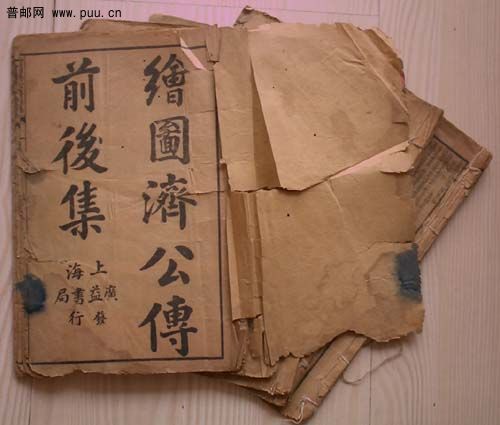 普邮网 www.puu.cn
繪圖濟公傳
前後集
上海
廣益書局
發行